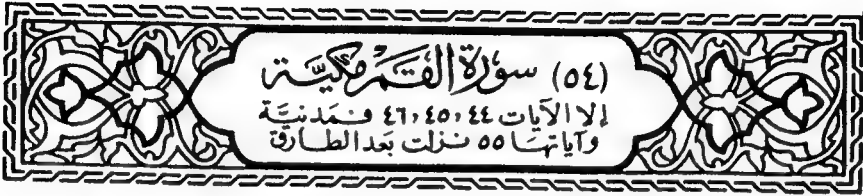 (٥٤) سورة القمر مكية
إلا الآيات ٤٤، ٤٥، ٤٦ فمدنية
وآياتها ٥٥ نزلت بعد الطارق